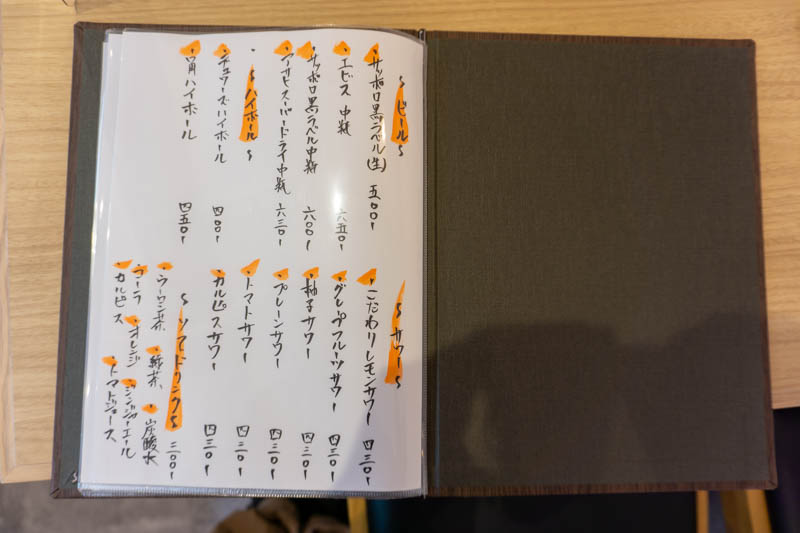 ~ビール~
・サッポロ黒ラベル(生) 五〇〇-
・エビス 中瓶 六五〇-
・サッポロ黒ラベル中瓶 六〇〇-
・アサヒスーパードライ中瓶 六三〇-
・~ハイボール~
・デュワーズハイボール 四〇〇-
・角ハイボール 四五〇-
~サワー~
・こだわりレモンサワー 四三〇-
・グレープフルーツサワー 四三〇-
・柚子サワー 四三〇-
・プレーンサワー 四三〇-
・トマトサワー 四三〇-
・カルピスサワー 四三〇-
~ソフトドリンク~ 三〇〇-
・ウーロン茶 ・緑茶 ・炭酸水
・コーラ ・オレンジ ・ジンジャーエール
・カルピス ・トマトジュース